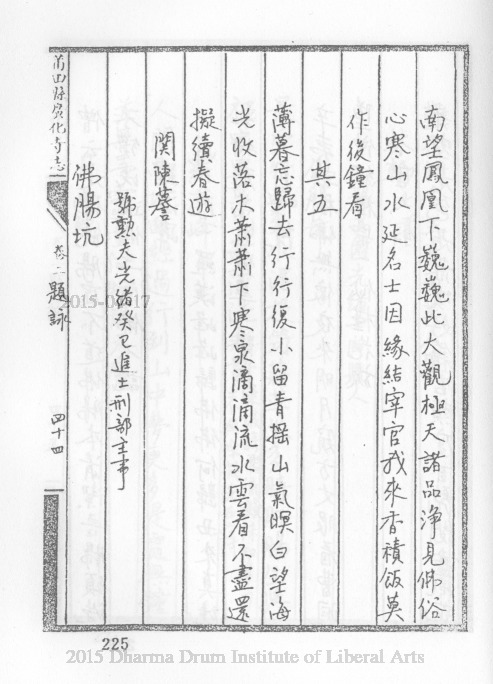 南望鳳凰下巍巍此大觀極天諸品淨見佛俗
心寒山水延名士因緣結宰官我來香積飯莫
作後鐘看
其五
薄暮忘歸去行行復小留青搖山氣暝白望海
光收落木蕭蕭下寒泉滴滴流水雲看不盡還
擬續春遊
關陳謩
號勲夫光緒癸巳進士刑部主事
佛腸坑
莆田縣囊化寺志
卷二題詠
四十四
225
2015-06-17
2015 Dharma Drum Institute of Liberal Arts